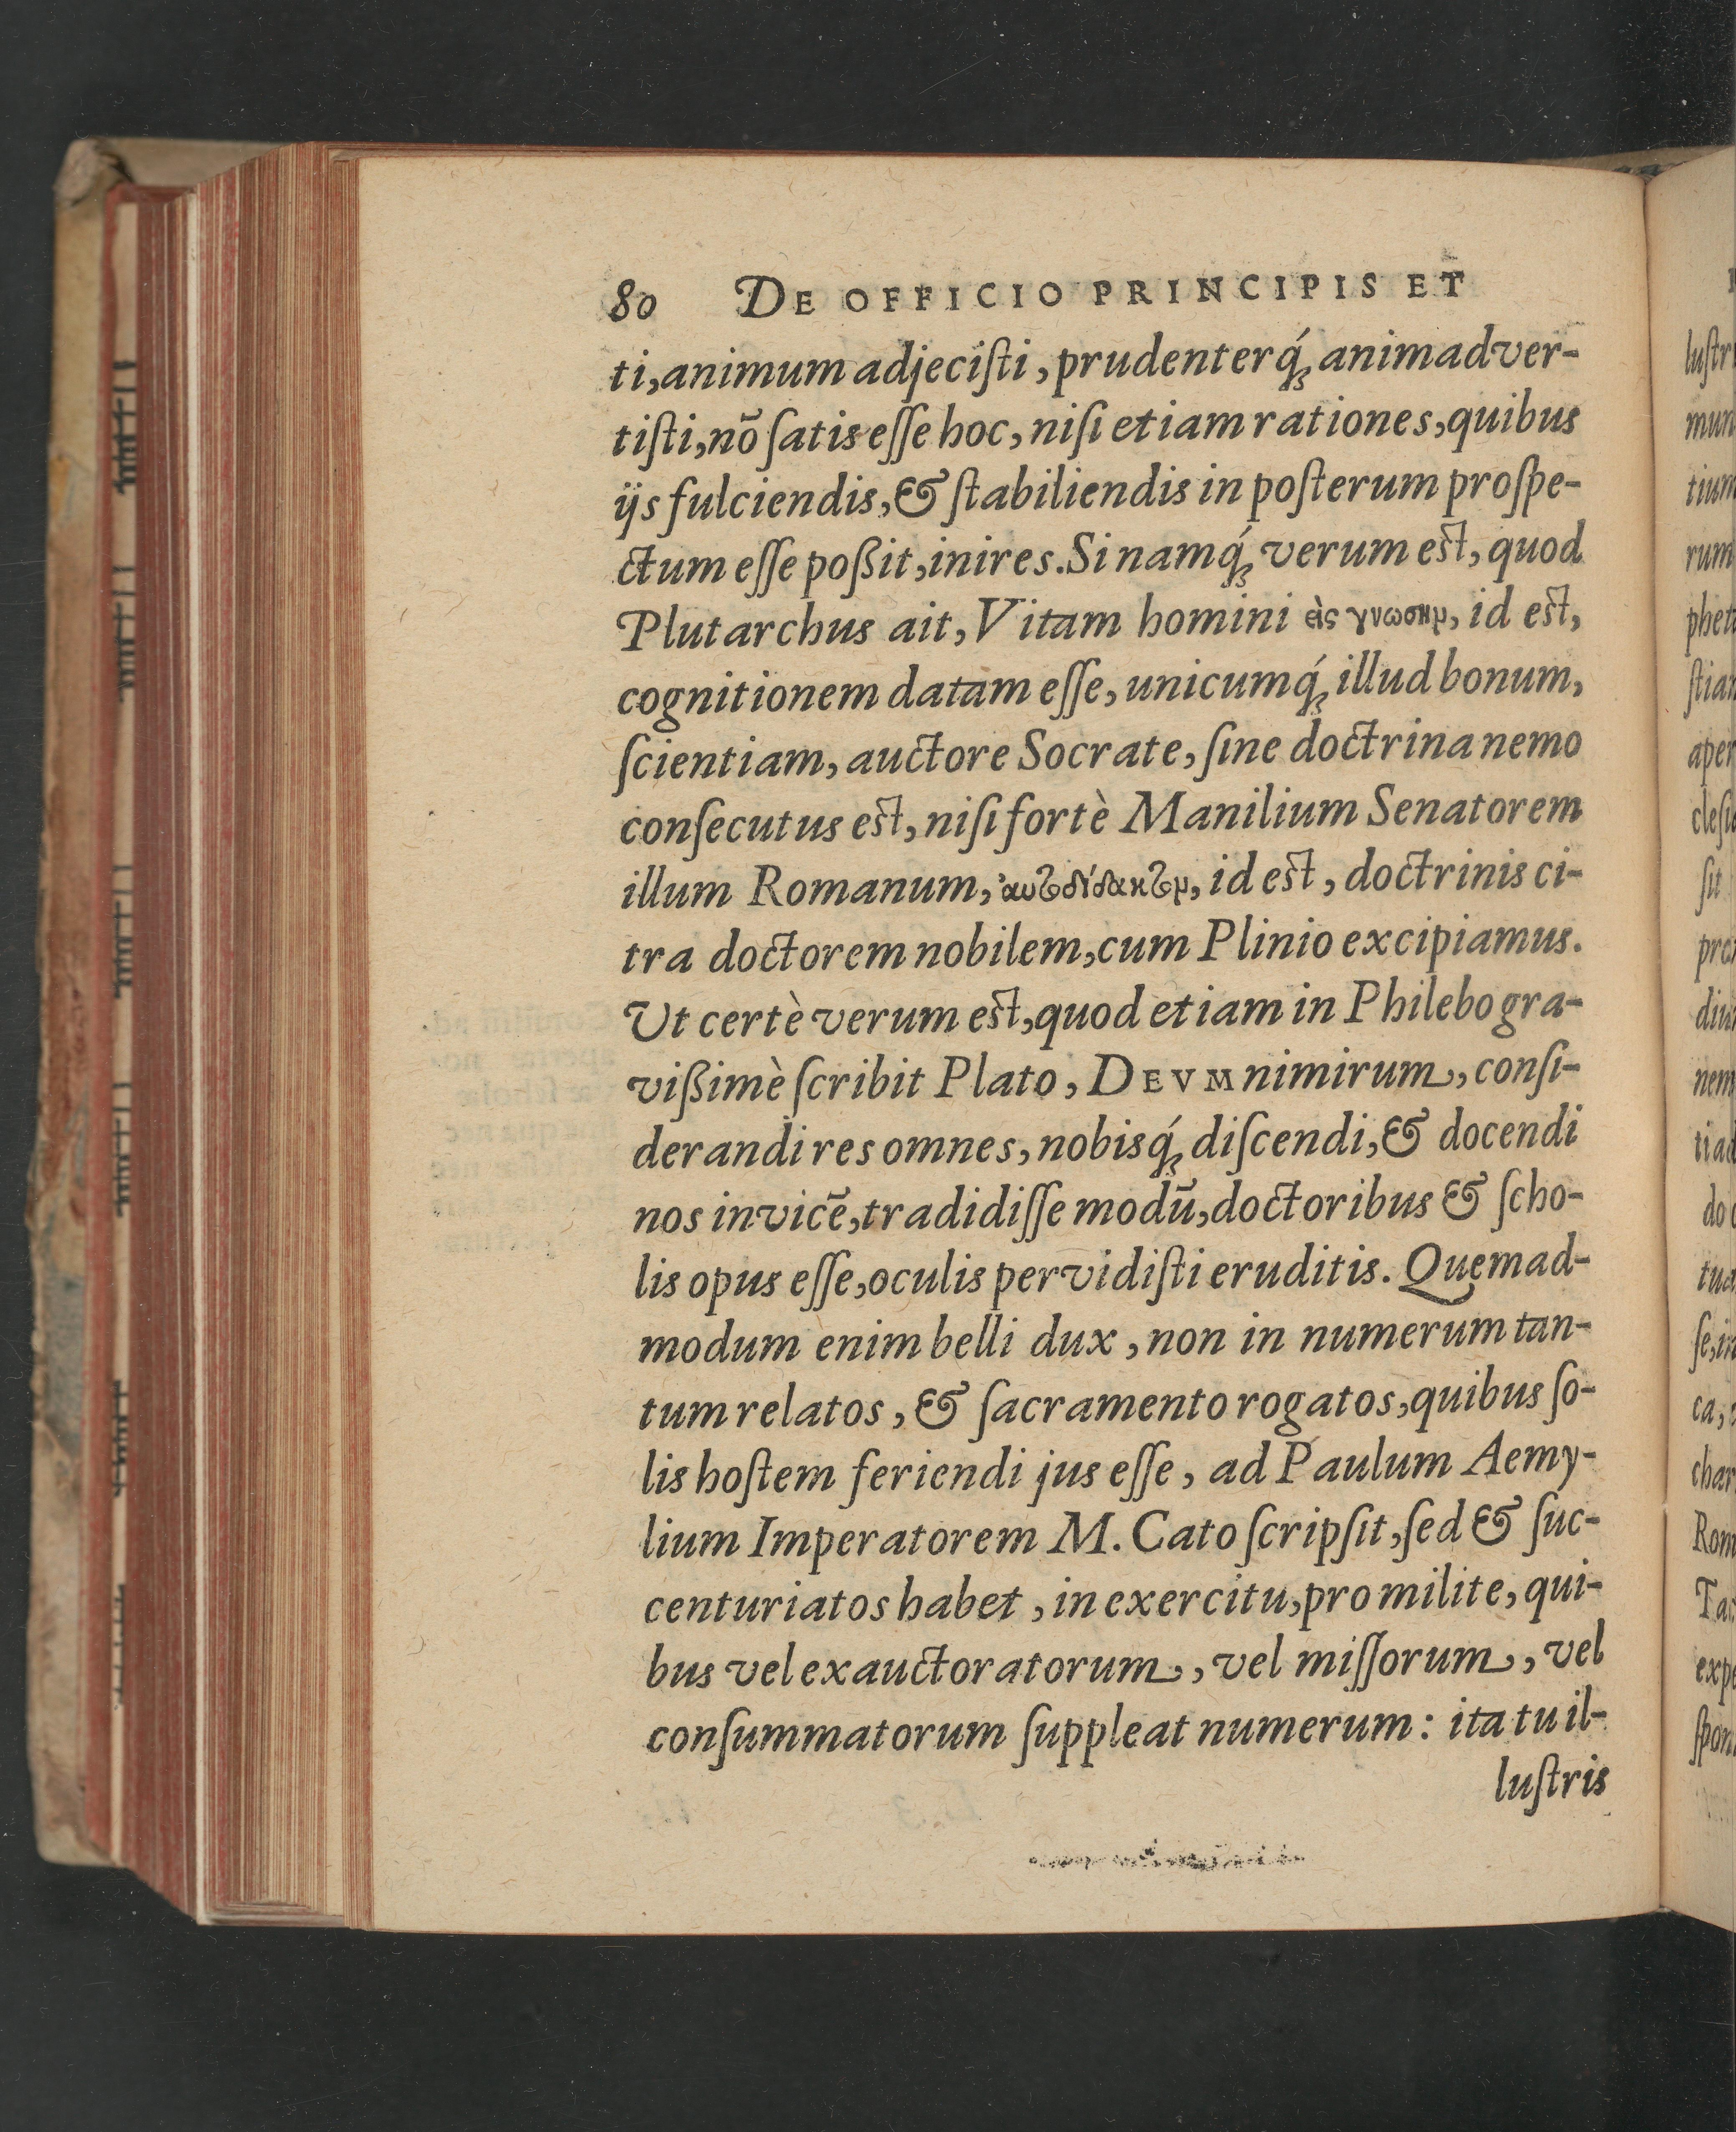 80 DE OFFICIO PRINCIPIS ET
ti, animum adjeciſti, prudenterq́ꝫ animadver-
tiſti, nō ſatis eſſe hoc, niſi etiam rationes, quibus
ijs fulciendis, & ſtabiliendis in poſterum proſpe-
ctum eſſe poßit, inires. Si namq́ꝫ verum eſt, quod
Plutarchus ait, Vitam homini εἰς γνωσιν, id eſt,
cognitionem datam eſſe, unicumq́ꝫ illud bonum,
ſcientiam, auctore Socrate, ſine doctrina nemo
conſecutus eſt, niſi fortè Manilium Senatorem
illum Romanum, αυτοδίδακτον, id eſt, doctrinis ci-
tra doctorem nobilem, cum Plinio excipiamus.
Ut certè verum eſt, quod etiam in Philebo gra-
vißimè ſcribit Plato, DEVM nimirum, conſi-
derandi res omnes, nobisq́ꝫ diſcendi, & docendi
nos invicē, tradidiſſe modū, doctoribus & ſcho-
lis opus eſſe, oculis pervidiſti eruditis. Quemad-
modum enim belli dux, non in numerum tan-
tum relatos, & ſacramento rogatos, quibus ſo-
lis hoſtem feriendi jus eſſe, ad Paulum Aemy-
lium Imperatorem M. Cato ſcripſit, ſed & ſuc-
centuriatos habet, in exercitu, pro milite, qui-
bus vel exauctoratorum, vel miſſorum, vel
conſummatorum ſuppleat numerum: ita tu il-
luſtris
luſtr
mun
tium
rum
phet
ſtian
aper
cleſi
ſit
diu
nem
tiad
do
tua
ſe, in
ca,
char
Rom
Tac
expe
ſpon